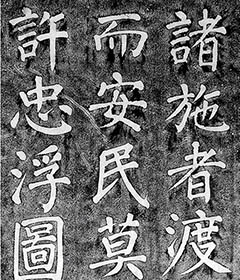 諸施者渡
而安民莫
許忠浮圖